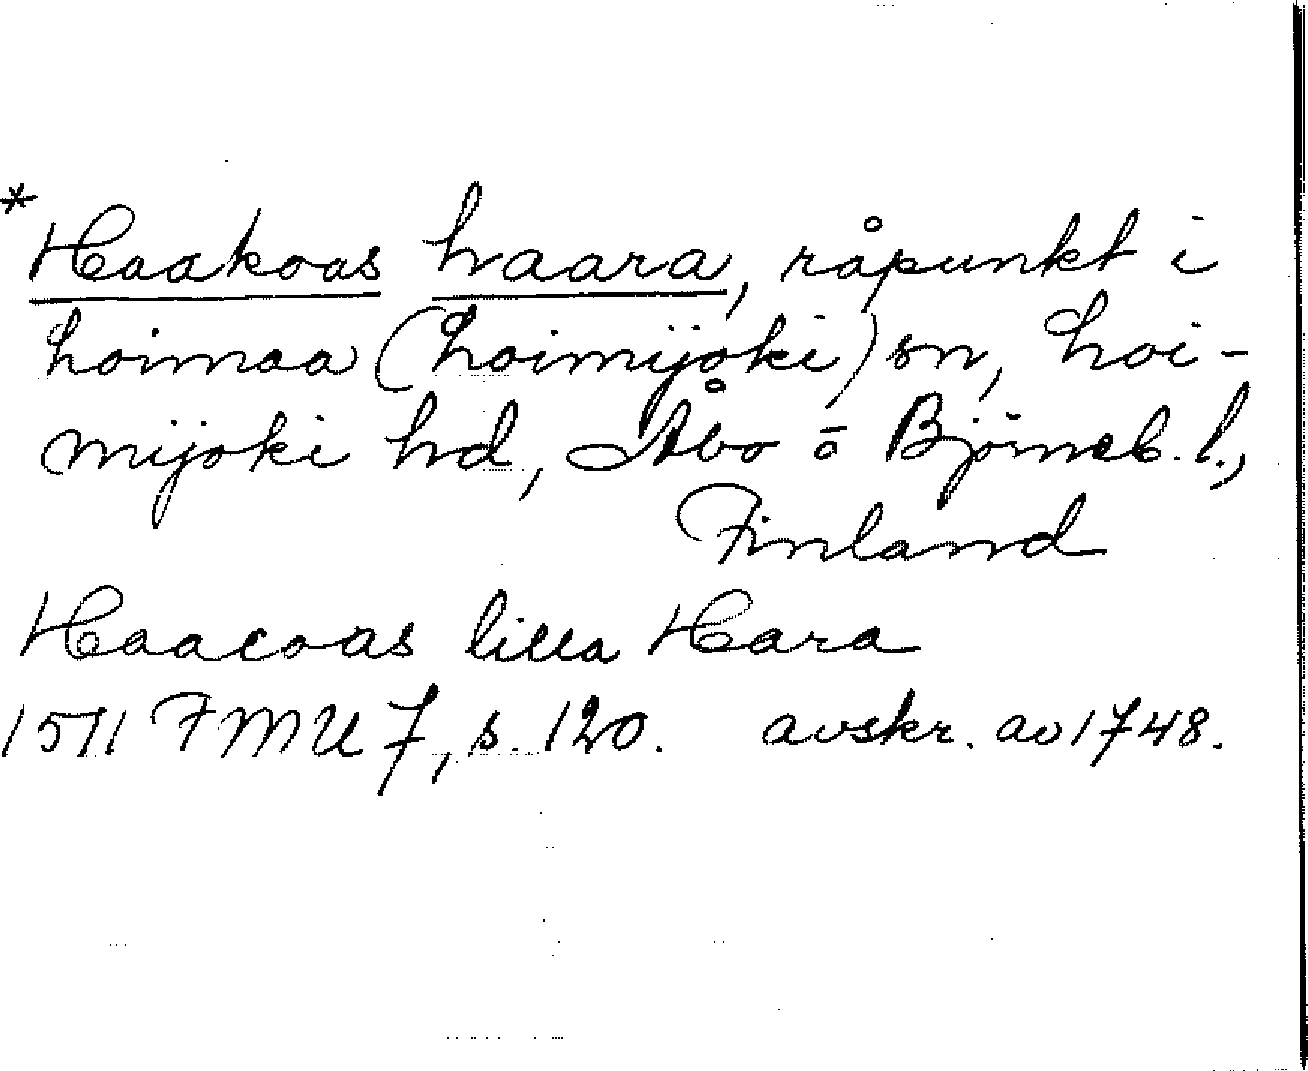 * Haakoas haara, råpunkt i
Loimaa (Loimijoki) sn, Loi-
mijoki hd, Åbo o Björneb. l.,
Finland
Haacoas lilla Hara
1511 FMU 7, s. 120. avskr. av 1748.